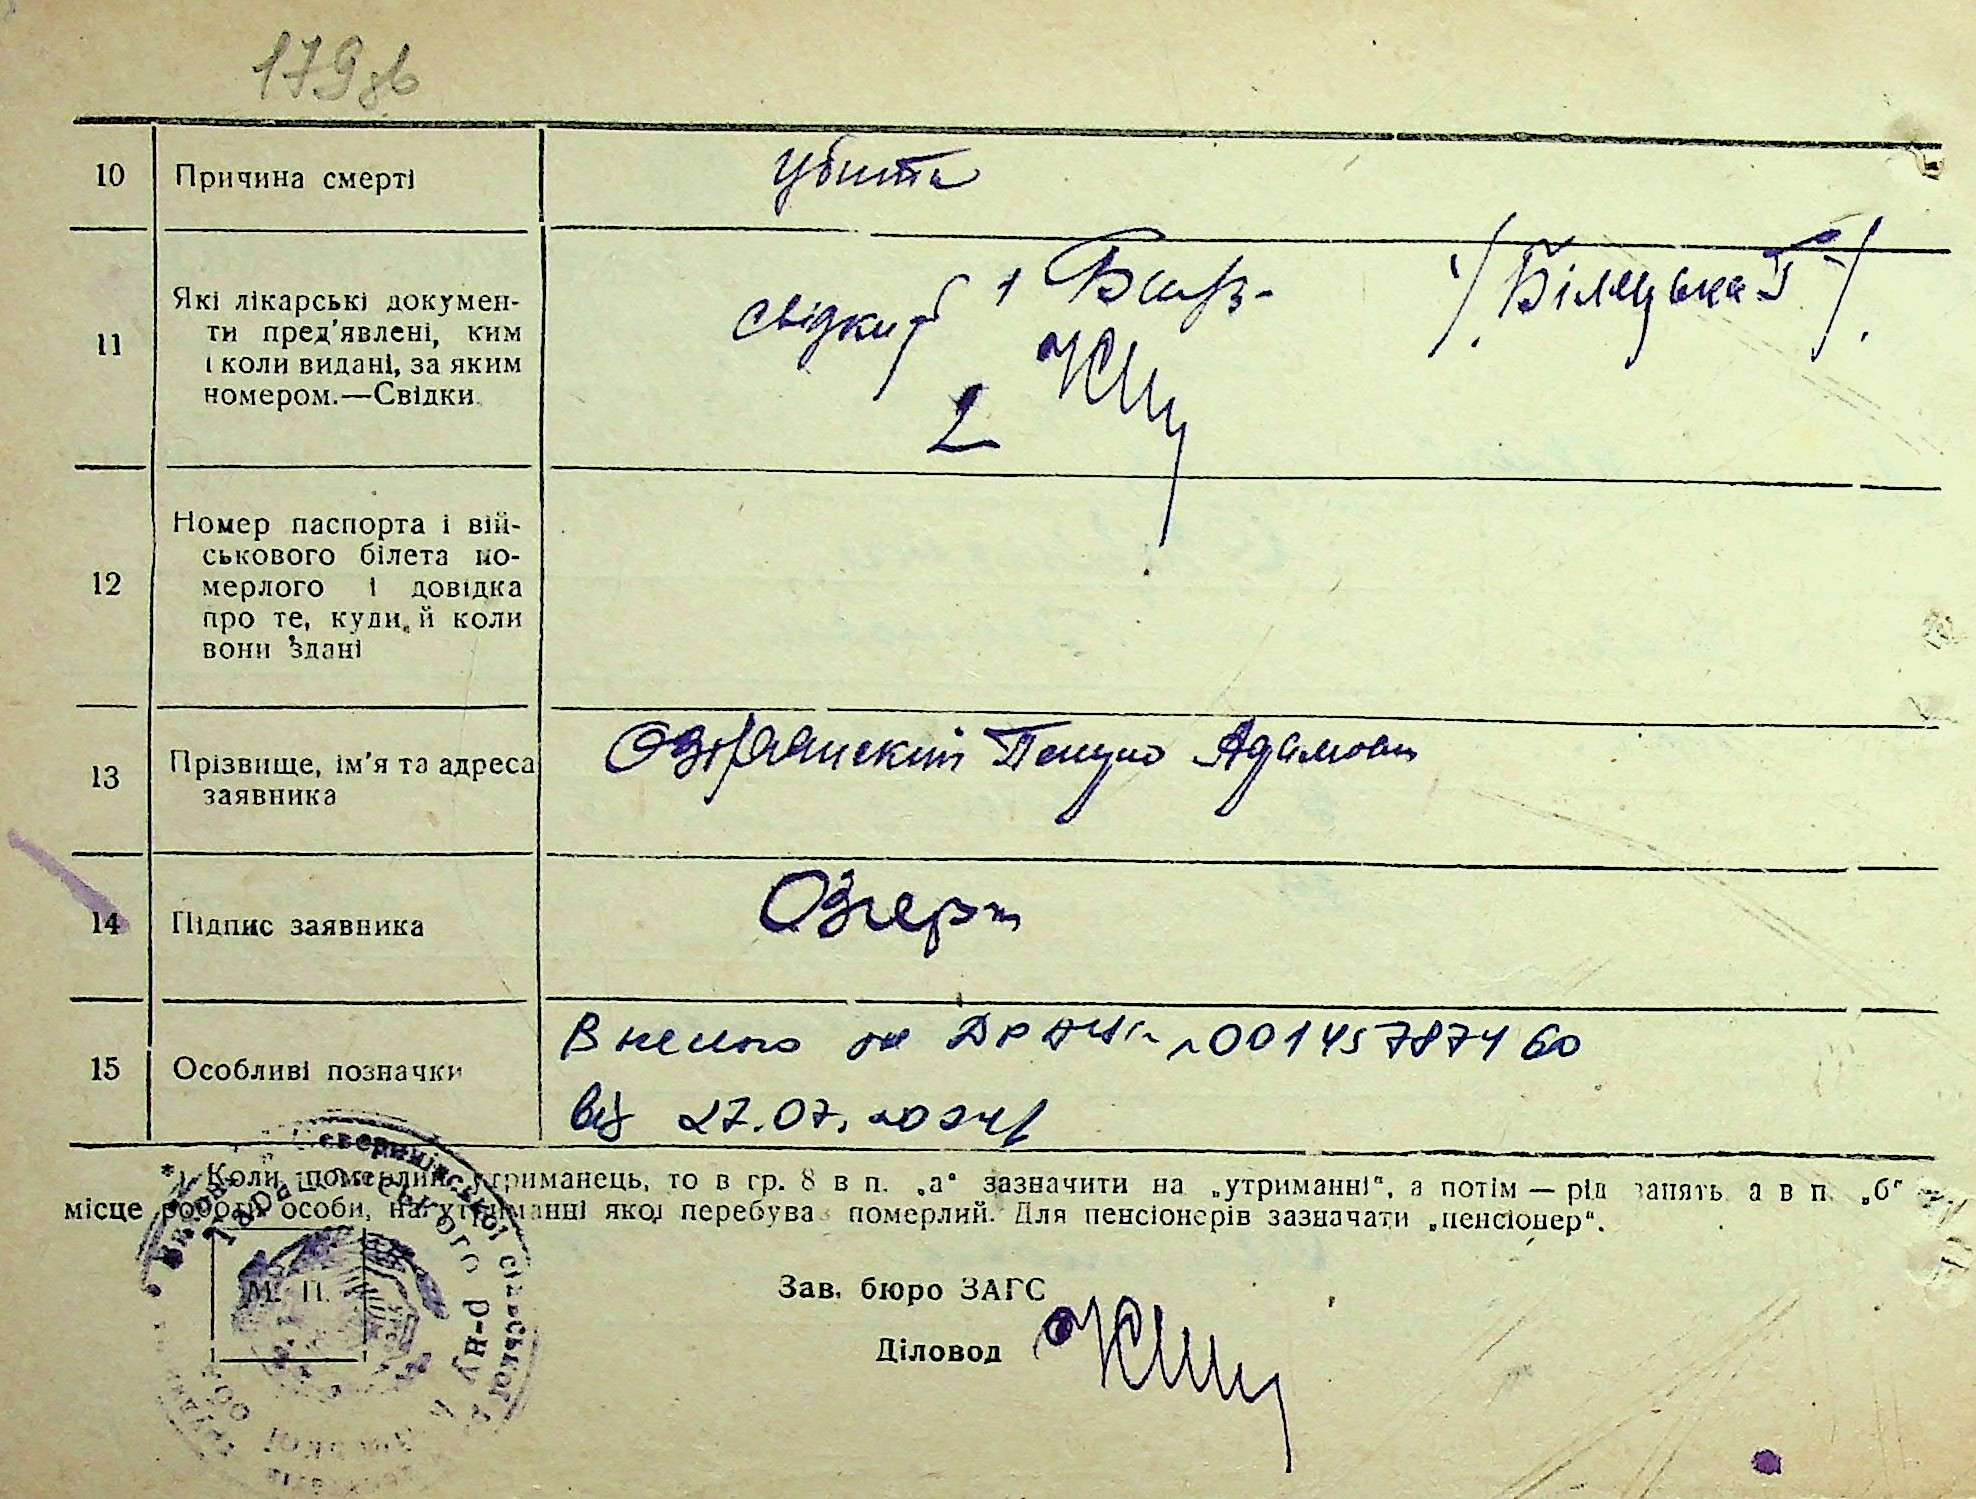 179 зв
10 Причина смерті убита
11 Які лікарські докумен-
ти пред'явлені, ким
і коли видані, за яким
номером.—Свідки.
свідки 1 /Білецька Г/.
2
12 Номер паспорта і вій-
ськового білета по-
мерлого і довідка
про те, куди й коли
вони здані
13 Прізвище, ім'я та адреса
заявника
Адамович
14 Підпис заявника
15 Особливі позначки
Внесено 00145787460
від 27.07.2024
*) Коли померлий утриманець, то в гр. 8 в п. „а“ зазначити на „утриманні“, а потім — рід занять а в п. „б“
місце роботи особи, на утриманні якої перебував померлий. Для пенсіонерів зазначати „пенсіонер“.
М. П.
Зав. бюро ЗАГС
Діловод
Северинівської сільської
р-ну